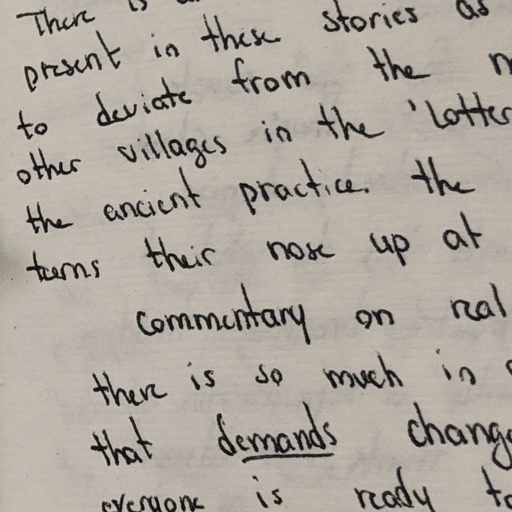 There is
present in these stories as
to deviate from the
other villages in the 'Lotter
the ancient practice. the
turns their nose up at
commentary on real
there is so much in
that demands change
everyone is ready to